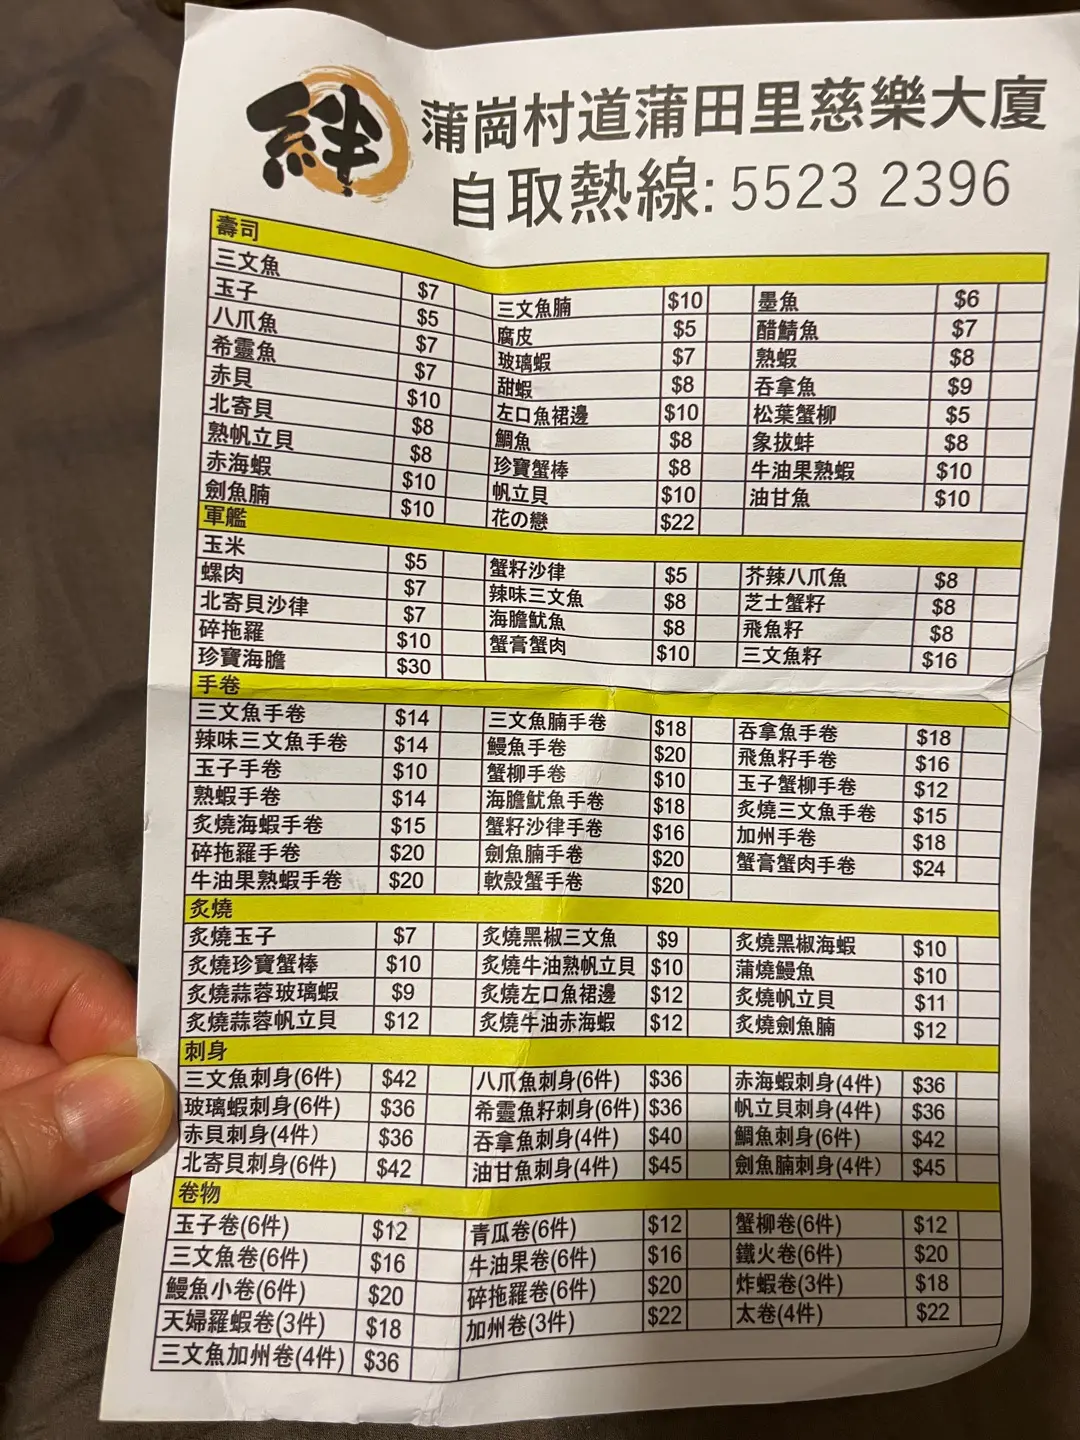 絆
蒲崗村道蒲田里慈樂大廈
自取熱線: 5523 2396
壽司
三文魚 $7 三文魚腩 $10 墨魚 $6
玉子 $5 腐皮 $5 醋鯖魚 $7
八爪魚 $7 玻璃蝦 $7 熟蝦 $8
希靈魚 $7 甜蝦 $8 吞拿魚 $9
赤貝 $10 左口魚裙邊 $10 松葉蟹柳 $5
北寄貝 $8 鯛魚 $8 象拔蚌 $8
熟帆立貝 $8 珍寶蟹棒 $8 牛油果熟蝦 $10
赤海蝦 $10 帆立貝 $10 油甘魚 $10
劍魚腩 $10 花の戀 $22
軍艦
玉米 $5 蟹籽沙律 $5 芥辣八爪魚 $8
螺肉 $7 辣味三文魚 $8 芝士蟹籽 $8
北寄貝沙律 $7 海膽魷魚 $8 飛魚籽 $8
碎拖羅 $10 蟹膏蟹肉 $10 三文魚籽 $16
珍寶海膽 $30
手卷
三文魚手卷 $14 三文魚腩手卷 $18 吞拿魚手卷 $18
辣味三文魚手卷 $14 鰻魚手卷 $20 飛魚籽手卷 $16
玉子手卷 $10 蟹柳手卷 $10 玉子蟹柳手卷 $12
熟蝦手卷 $14 海膽魷魚手卷 $18 炙燒三文魚手卷 $15
炙燒海蝦手卷 $15 蟹籽沙律手卷 $16 加州手卷 $18
碎拖羅手卷 $20 劍魚腩手卷 $20 蟹膏蟹肉手卷 $24
牛油果熟蝦手卷 $20 軟殼蟹手卷 $20
炙燒
炙燒玉子 $7 炙燒黑椒三文魚 $9 炙燒黑椒海蝦 $10
炙燒珍寶蟹棒 $10 炙燒牛油熟帆立貝 $10 蒲燒鰻魚 $10
炙燒蒜蓉玻璃蝦 $9 炙燒左口魚裙邊 $12 炙燒帆立貝 $11
炙燒蒜蓉帆立貝 $12 炙燒牛油赤海蝦 $12 炙燒劍魚腩 $12
刺身
三文魚刺身(6件) $42 八爪魚刺身(6件) $36 赤海蝦刺身(4件) $36
玻璃蝦刺身(6件) $36 希靈魚籽刺身(6件) $36 帆立貝刺身(4件) $36
赤貝刺身(4件) $36 吞拿魚刺身(4件) $40 鯛魚刺身(6件) $42
北寄貝刺身(6件) $42 油甘魚刺身(4件) $45 劍魚腩刺身(4件) $45
卷物
玉子卷(6件) $12 青瓜卷(6件) $12 蟹柳卷(6件) $12
三文魚卷(6件) $16 牛油果卷(6件) $16 鐵火卷(6件) $20
鰻魚小卷(6件) $20 碎拖羅卷(6件) $20 炸蝦卷(3件) $18
天婦羅蝦卷(3件) $18 加州卷(3件) $22 太卷(4件) $22
三文魚加州卷(4件) $36